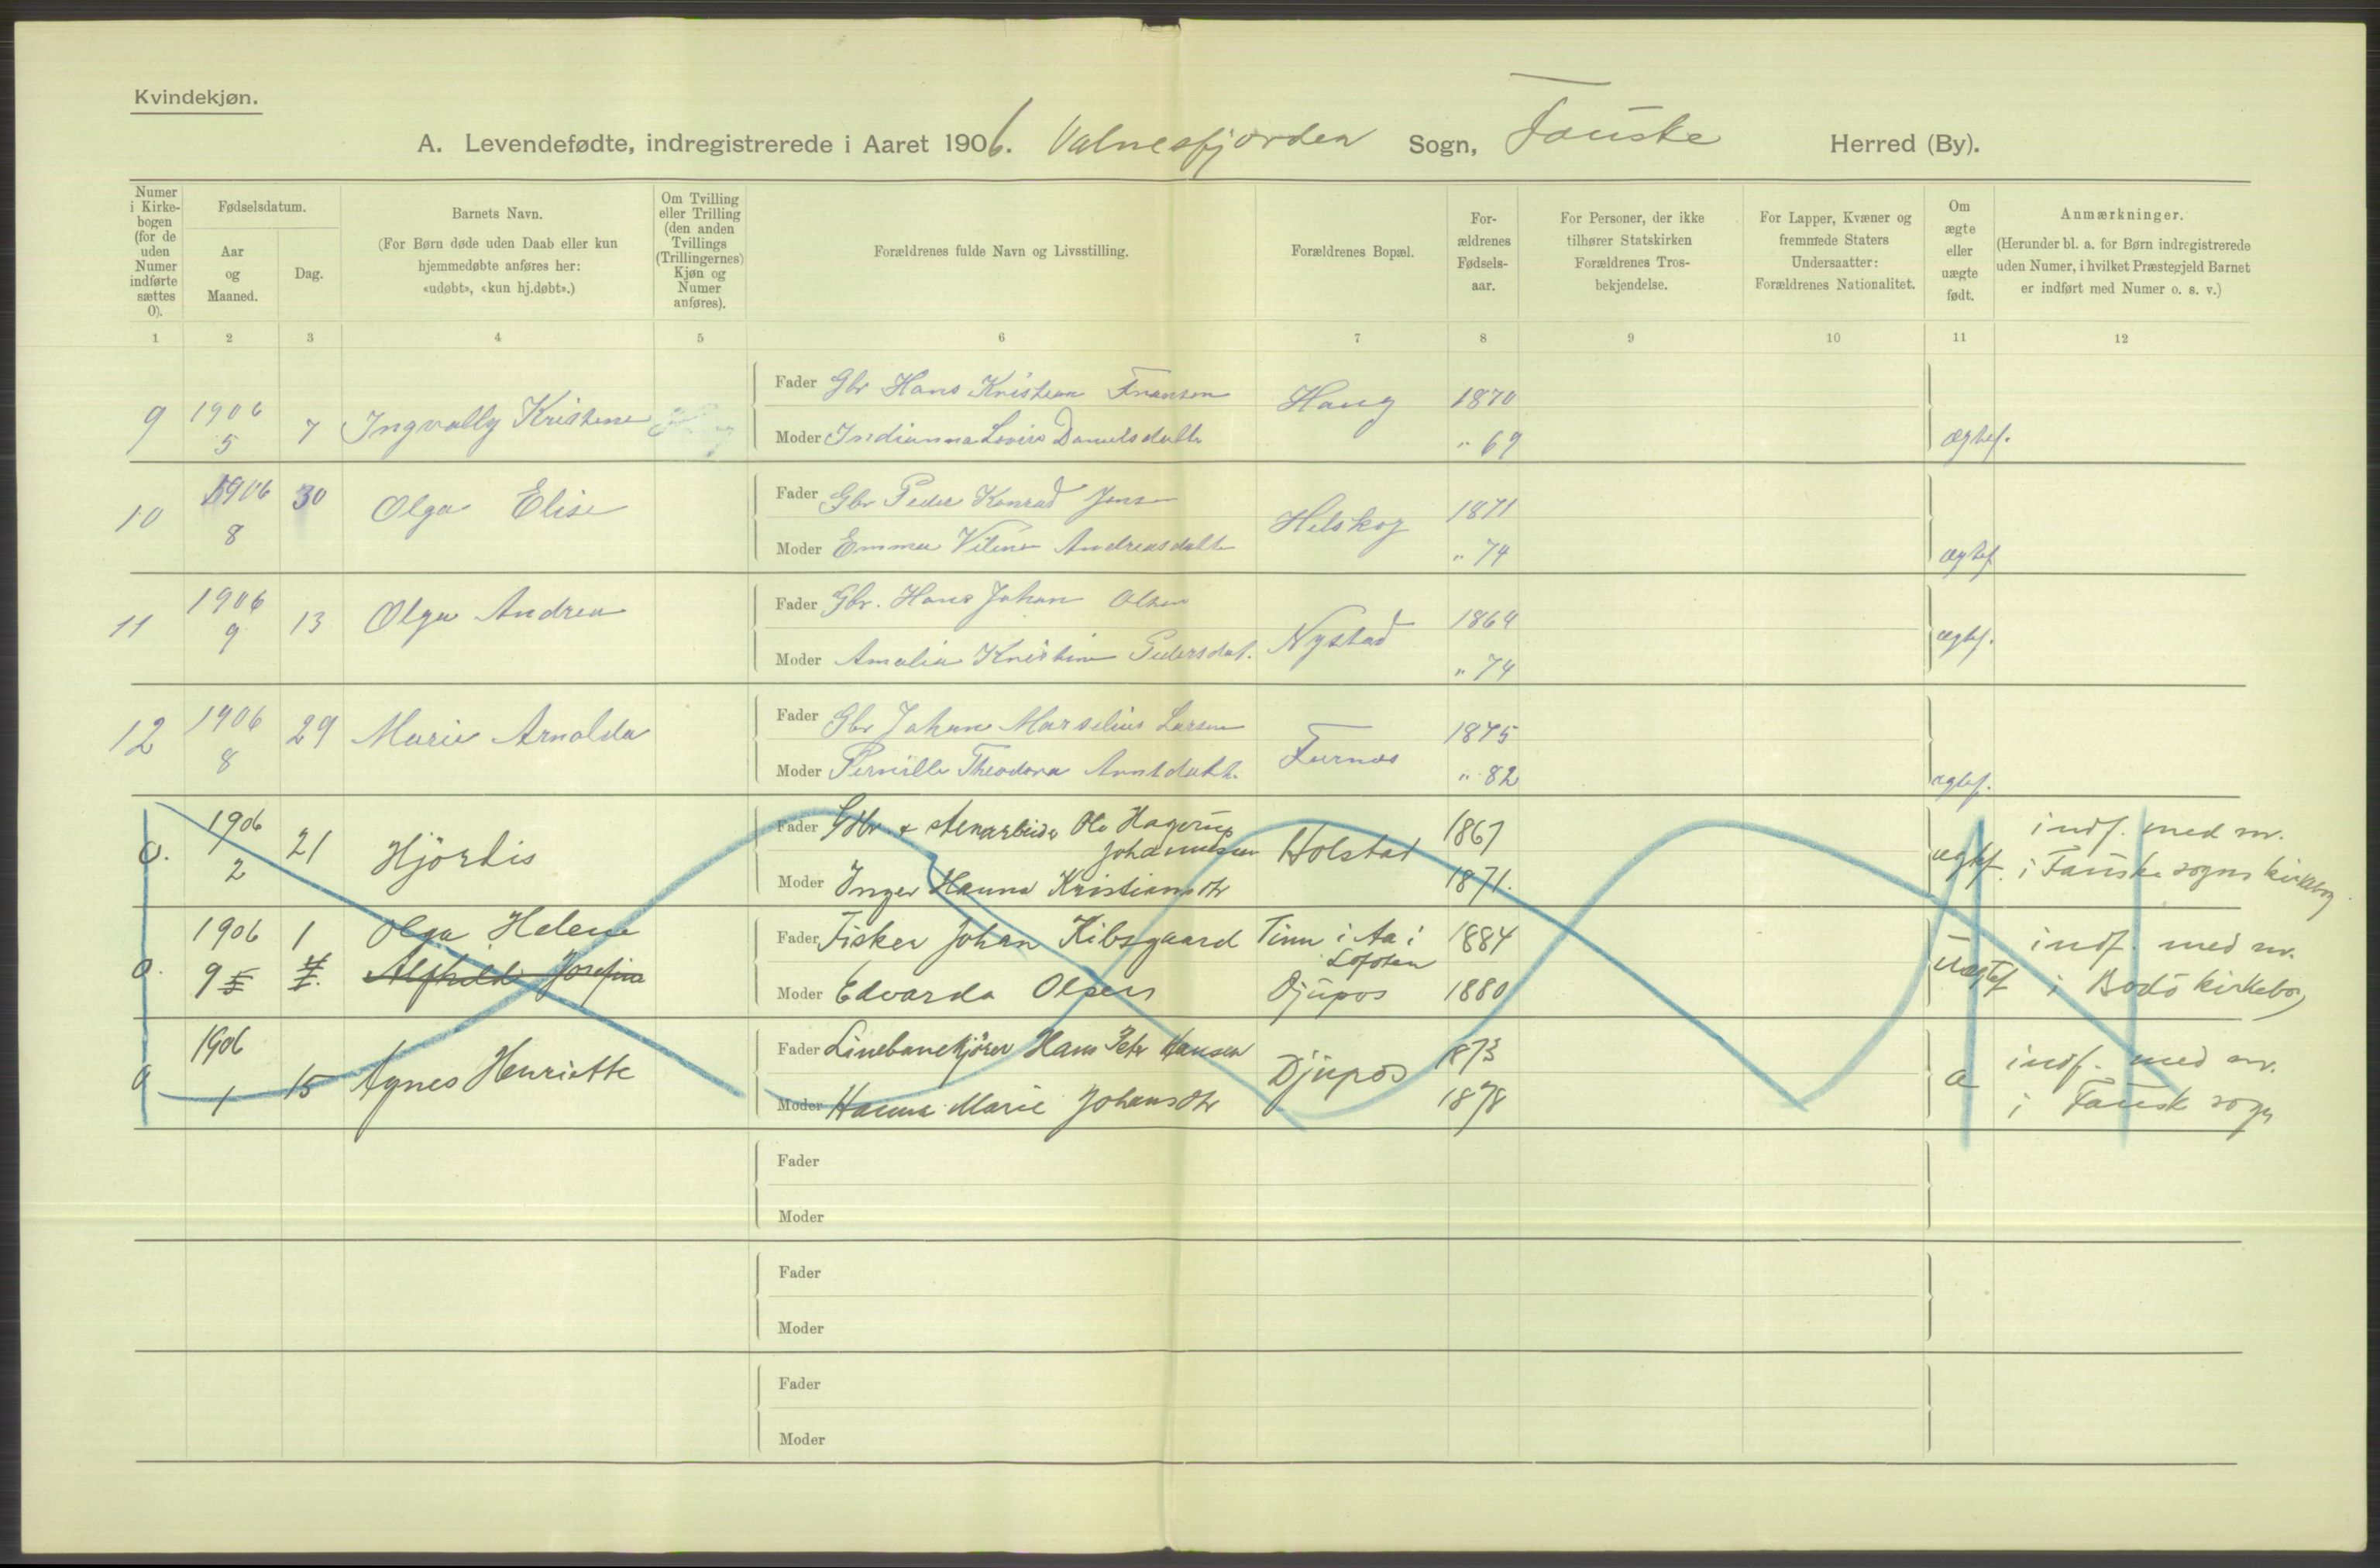 Kvindekjøn.
A. Levendefødte, indregistrerede i Aaret 1906. Valnesfjorden Sogn, Fauske Herred (By).
Numer i Kirkebogen (for de uden Numer indførte sættes 0).
Fødselsdatum.
Aar og Maaned.
Dag.
Barnets Navn.
(For Børn døde uden Daab eller kun hjemmedøbte anføres her: «udøbt», «kun hj.døbt».)
Om Tvilling eller Trilling (den anden Tvillings (Trillingernes) Kjøn og Numer anføres).
Forældrenes fulde Navn og Livsstilling.
Forældrenes Bopæl.
Forældrenes Fødselsaar.
For Personer, der ikke tilhører Statskirken Forældrenes Trosbekjendelse.
For Lapper, Kvæner og fremmede Staters Undersaatter: Forældrenes Nationalitet.
Om ægte eller uægte født.
Anmærkninger.
(Herunder bl. a. for Børn indregistrerede uden Numer, i hvilket Præstegjeld Barnet er indført med Numer o. s. v.)
1 2 3 4 5 6 7 8 9 10 11 12
9 1906 5 7 Ingvally Kristine
Fader Gbr Hans Kristian Fransen Haug 1870
Moder Indianna Lovise Danielsdatter " 69 ægtef.
10 1906 8 30 Olga Elise
Fader Gbr Peder Konrad Jensen Helskog 1871
Moder Emma Vilene Andreasdatter " 74 ægtef
11 1906 9 13 Olga Andrea
Fader Gbr. Hans Johan Olsen Nystad 1864
Moder Amalia Kristine Pedersdat. " 74 ægtef.
12 1906 8 29 Marie Arnolda
Fader Gbr Johan Marselius Larsen Furnes 1875
Moder Pernille Theodora Arntdatt. " 82 ægtef.
0. 1906 2 21 Hjördis
Fader Gbr & stenarbeider Ole Hagerup Johannessen Holstad 1867
Moder Inger Hanna Kristiansdtr 1871. ægtef. indf. med nr. i Fauske sogns kirkebog
0. 1906 9 1 Olga Helene
Alfhild Josefine
Fader Fisker Johan Kibsgaard Tinn i Aa i Lofoten 1884
Moder Edvarda Olsen Djupos 1880 Uægtef indf. med nr. i Bodö kirkebog
0 1906 1 15 Agnes Henriette
Fader Linebanekjörer Hans Petr Hansen Djupos 1873
Moder Hanna Marie Johansdtr 1878 æ indf. med nr. i Fausk sogn
Fader
Moder
Fader
Moder
Fader
Moder